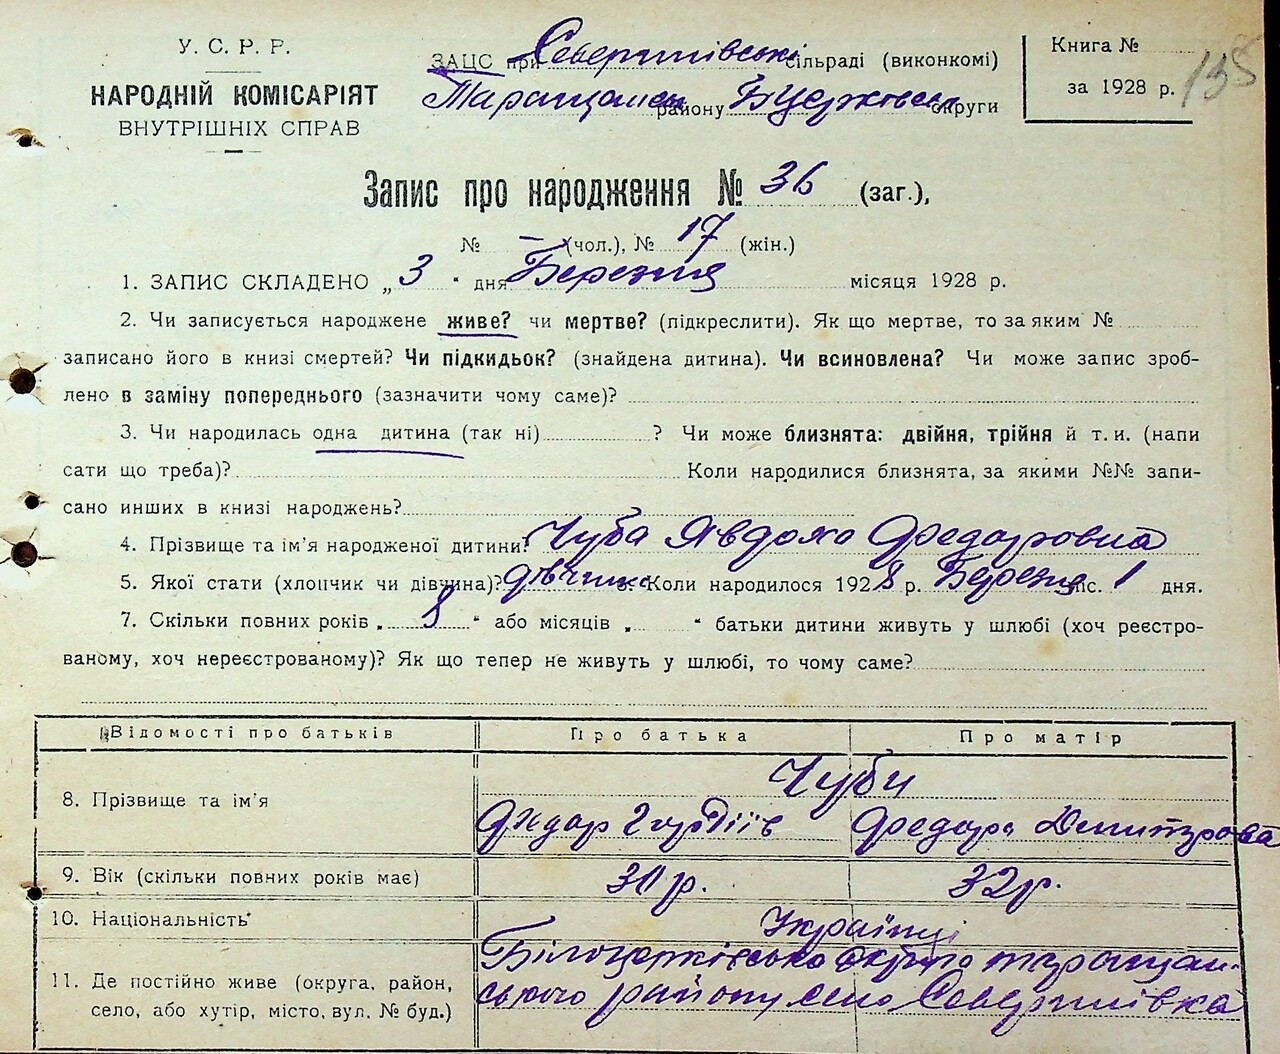 У. С. Р. Р.
НАРОДНІЙ КОМІСАРІЯТ
ВНУТРІШНІХ СПРАВ
ЗАЦС при Северинівські сільраді (виконкомі)
Таращанськ району БЦерковськ округи
Книга №
за 1928 р.
138
Запис про народження № 36 (заг.),
№ – (чол.), № 17 (жін.)
1. ЗАПИС СКЛАДЕНО „ 3 “ дня Березня місяця 1928 р.
2. Чи записується народжене живе? чи мертве? (підкреслити). Як що мертве, то за яким №
записано його в книзі смертей? Чи підкидьок? (знайдена дитина). Чи всиновлена? Чи може запис зроб-
лено в заміну попереднього (зазначити чому саме)?
3. Чи народилась одна дитина (так ні) ? Чи може близнята: двійня, трійня й т. и. (напи
сати що треба)? Коли народилися близнята, за якими №№ запи-
сано инших в книзі народжень?
4. Прізвище та ім'я народженої дитини? Чуба Явдоха Федоровна
5. Якої стати (хлопчик чи дівчина)? дівчина 6. Коли народилося 1928 р. Березня міс. 1 дня.
7. Скільки повних років „ 8 “ або місяців „ “ батьки дитини живуть у шлюбі (хоч реєстро-
ваному, хоч нереєстрованому)? Як що тепер не живуть у шлюбі, то чому саме?
Відомості про батьків Про батька Про матір
8. Прізвище та ім'я Чуби
Федар Гордіїв Федора Дмитрова
9. Вік (скільки повних років має) 30 р. 32 р.
10. Національність Українці
11. Де постійно живе (округа, район, Білоцерківсько округо таращан-
село, або хутір, місто, вул. № буд.) ського району село Северинівка